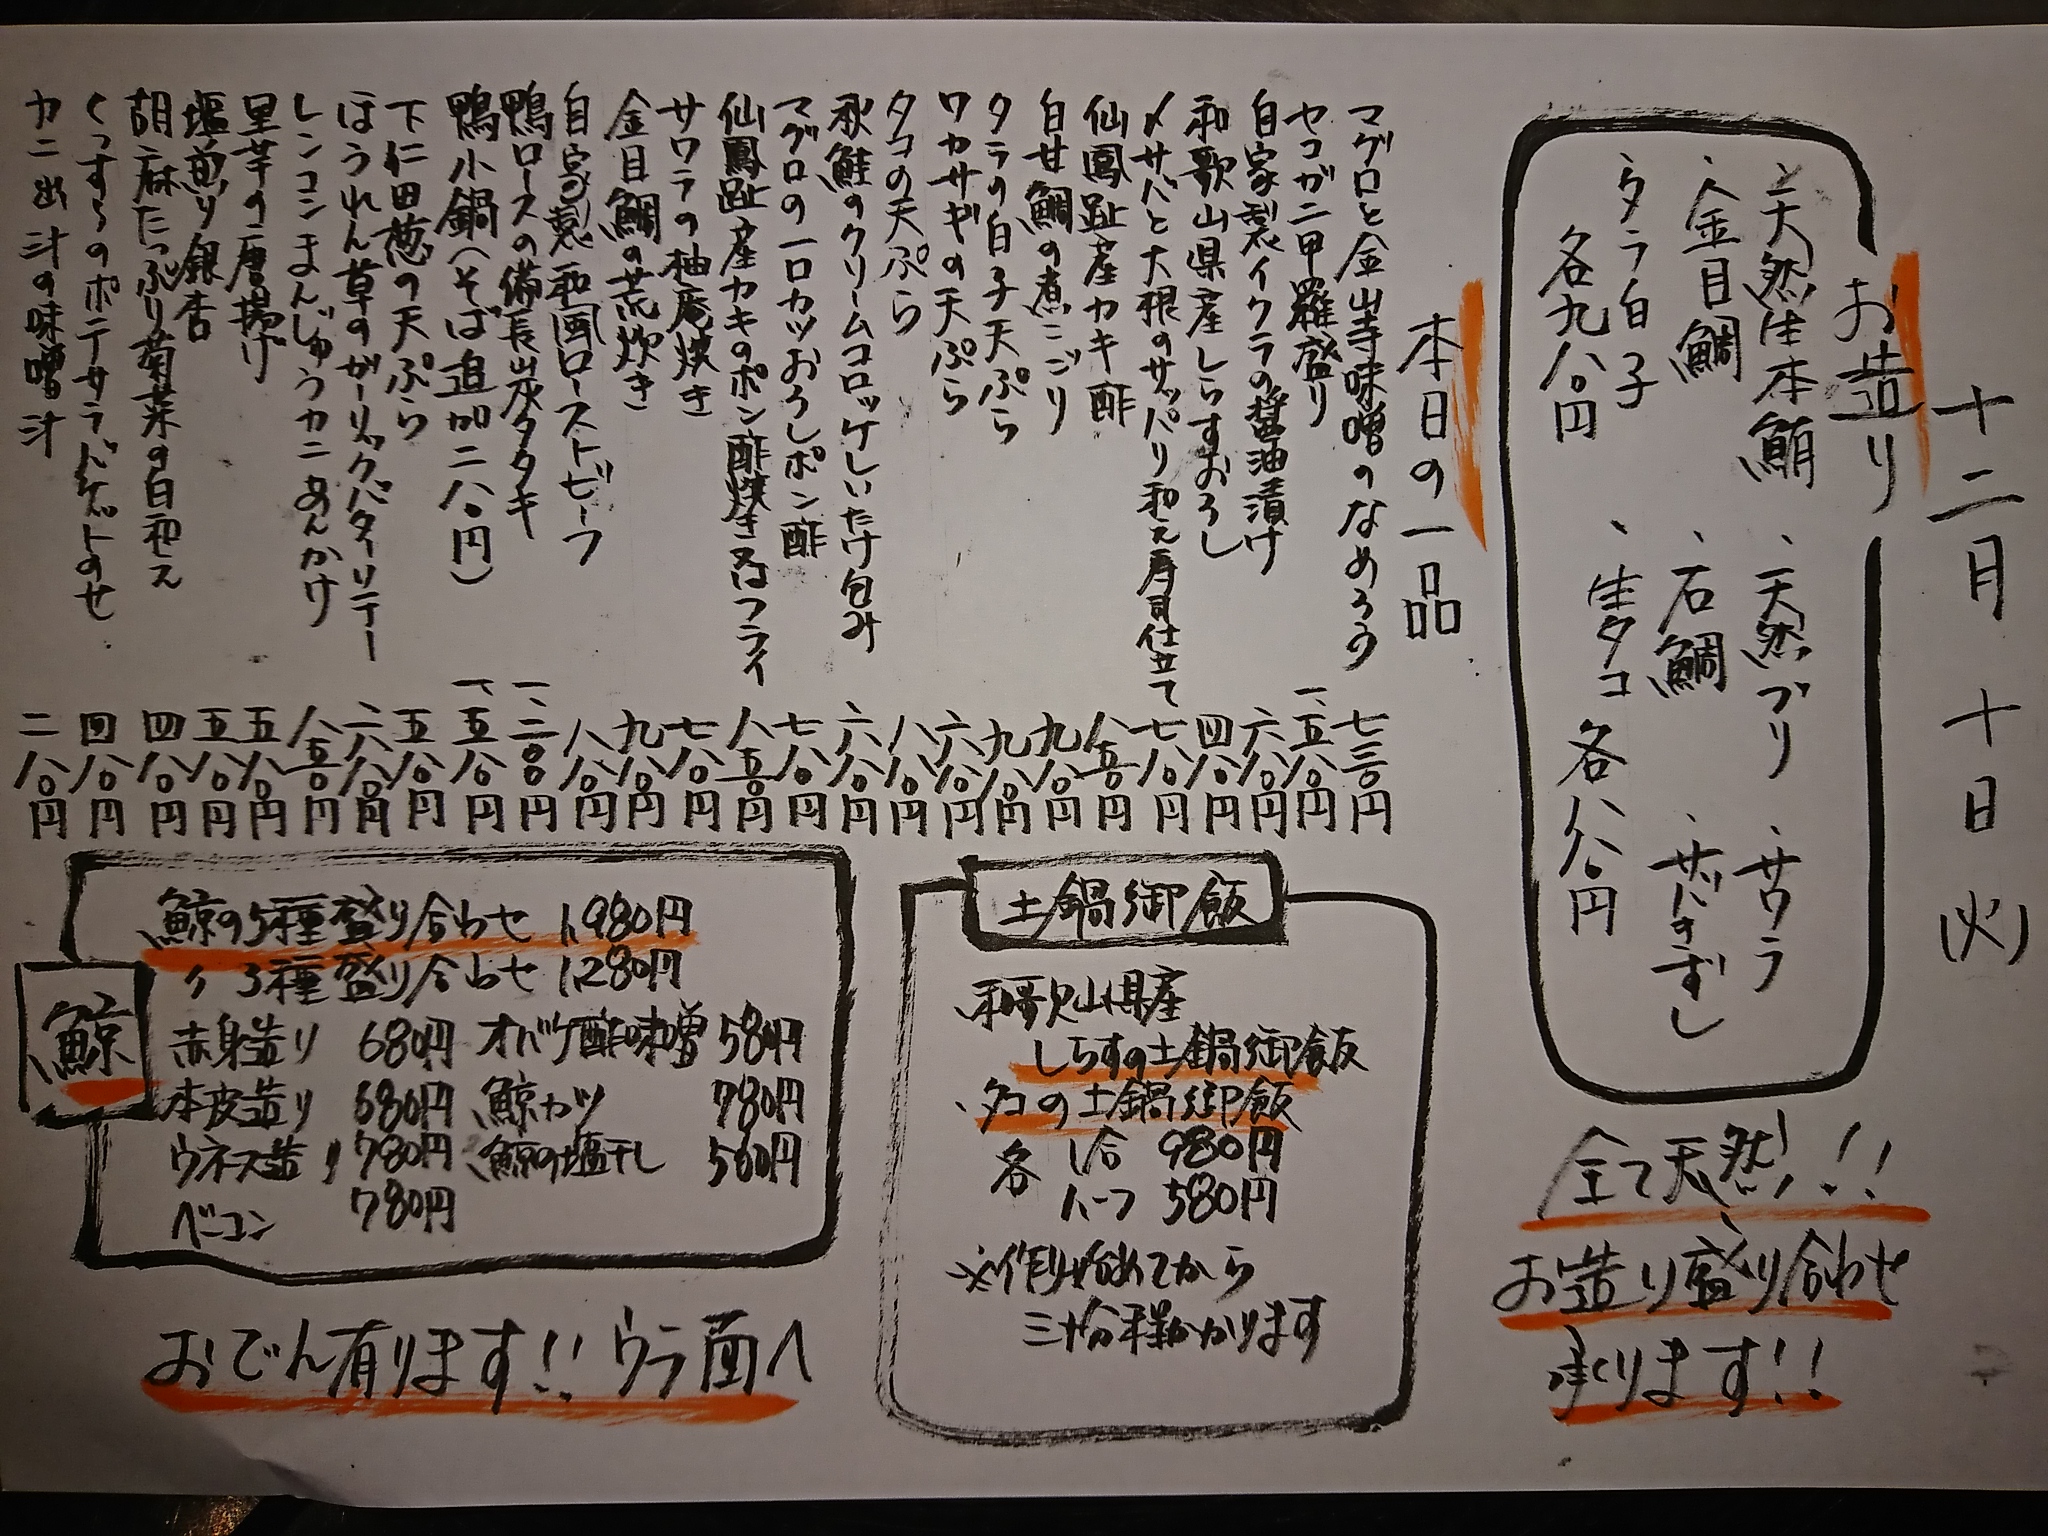 十二月十日(火)
お造り
、天然生本鮪 、天然ブリ 、サワラ
、金目鯛 、石鯛 、サバきずし
、タラ白子 、生タコ 各八八〇円
各九八〇円
全て天然!!
お造り盛り合わせ
承ります!!
本日の一品
マグロと金山寺味噌のなめろう 七三〇円
セコガニ甲羅盛り 一、五八〇円
自家製イクラの醤油漬け 六八〇円
和歌山県産しらすおろし 四八〇円
〆サバと大根のサッパリ和え寿司仕立て 七八〇円
仙鳳趾産カキ酢 八五〇円
白甘鯛の煮こごり 九八〇円
タラの白子天ぷら 九八〇円
ワカサギの天ぷら 六八〇円
タコの天ぷら 八八〇円
秋鮭のクリームコロッケしいたけ包み 六八〇円
マグロの一口カツおろしポン酢 七八〇円
仙鳳趾産カキのポン酢焼き又はフライ 八五〇円
サワラの柚庵焼き 七八〇円
金目鯛の荒炊き 九八〇円
自家製和風ローストビーフ 八八〇円
鴨ロースの備長炭タタキ 一、二〇〇円
鴨小鍋(そば追加二八〇円) 一、五八〇円
下仁田葱の天ぷら 五八〇円
ほうれん草のガーリックバターソテー 六八〇円
レンコンまんじゅうカニあんかけ 八五〇円
里芋の唐揚げ 五八〇円
塩煎り銀杏 五八〇円
胡麻たっぷり菊菜の白和え 四八〇円
くっすらのポテサラバゲットのせ 四八〇円
カニ出汁の味噌汁 二八〇円
土鍋御飯
、和歌山県産
しらすの土鍋御飯
、タコの土鍋御飯
各 1合 980円
ハーフ 580円
※作り始めてから
三十分程かかります
鯨
鯨の5種盛り合わせ 1,980円
〃 3種盛り合わせ 1,280円
赤身造り 680円 オバケ酢味噌 580円
本皮造り 680円 鯨カツ 780円
ウネス造り 780円 鯨の塩干し 560円
ベーコン 780円
おでん有ります!! ウラ面へ